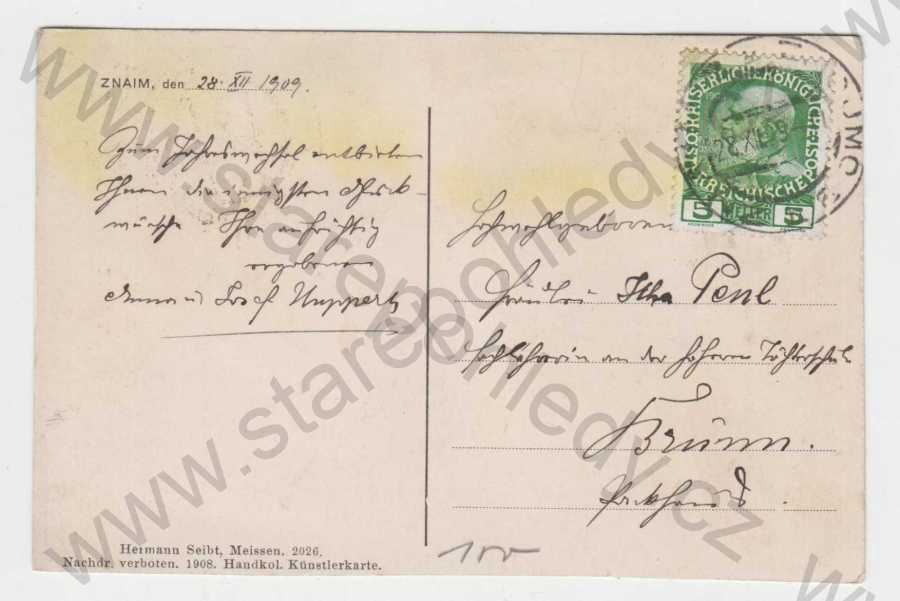 ZNAIM, den 28. XII 1909.
Zum Jahreswechsel entbieten
Ihnen die innigsten Glück-
wünsche Ihre aufrichtig
ergebenen
Anna u Josef Huppertz
Hochwohlgeboren
Fräulein Ilka Penl
Fachlehrerin an der höheren Töchterschule
Brünn.
Hermann Seibt, Meissen. 2026.
Nachdr. verboten. 1908. Handkol. Künstlerkarte.
100
KAISERLICHE KÖNIGLICHE ÖSTERREICHISCHE POST
5 HELLER 5
28.XII.09
ZNOJMO
www.starepohledy.cz